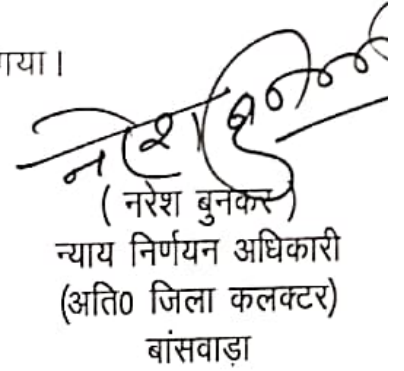 गया।
( नरेश बुनकर )
न्याय निर्णयन अधिकारी
(अति0 जिला कलक्टर)
बांसवाड़ा